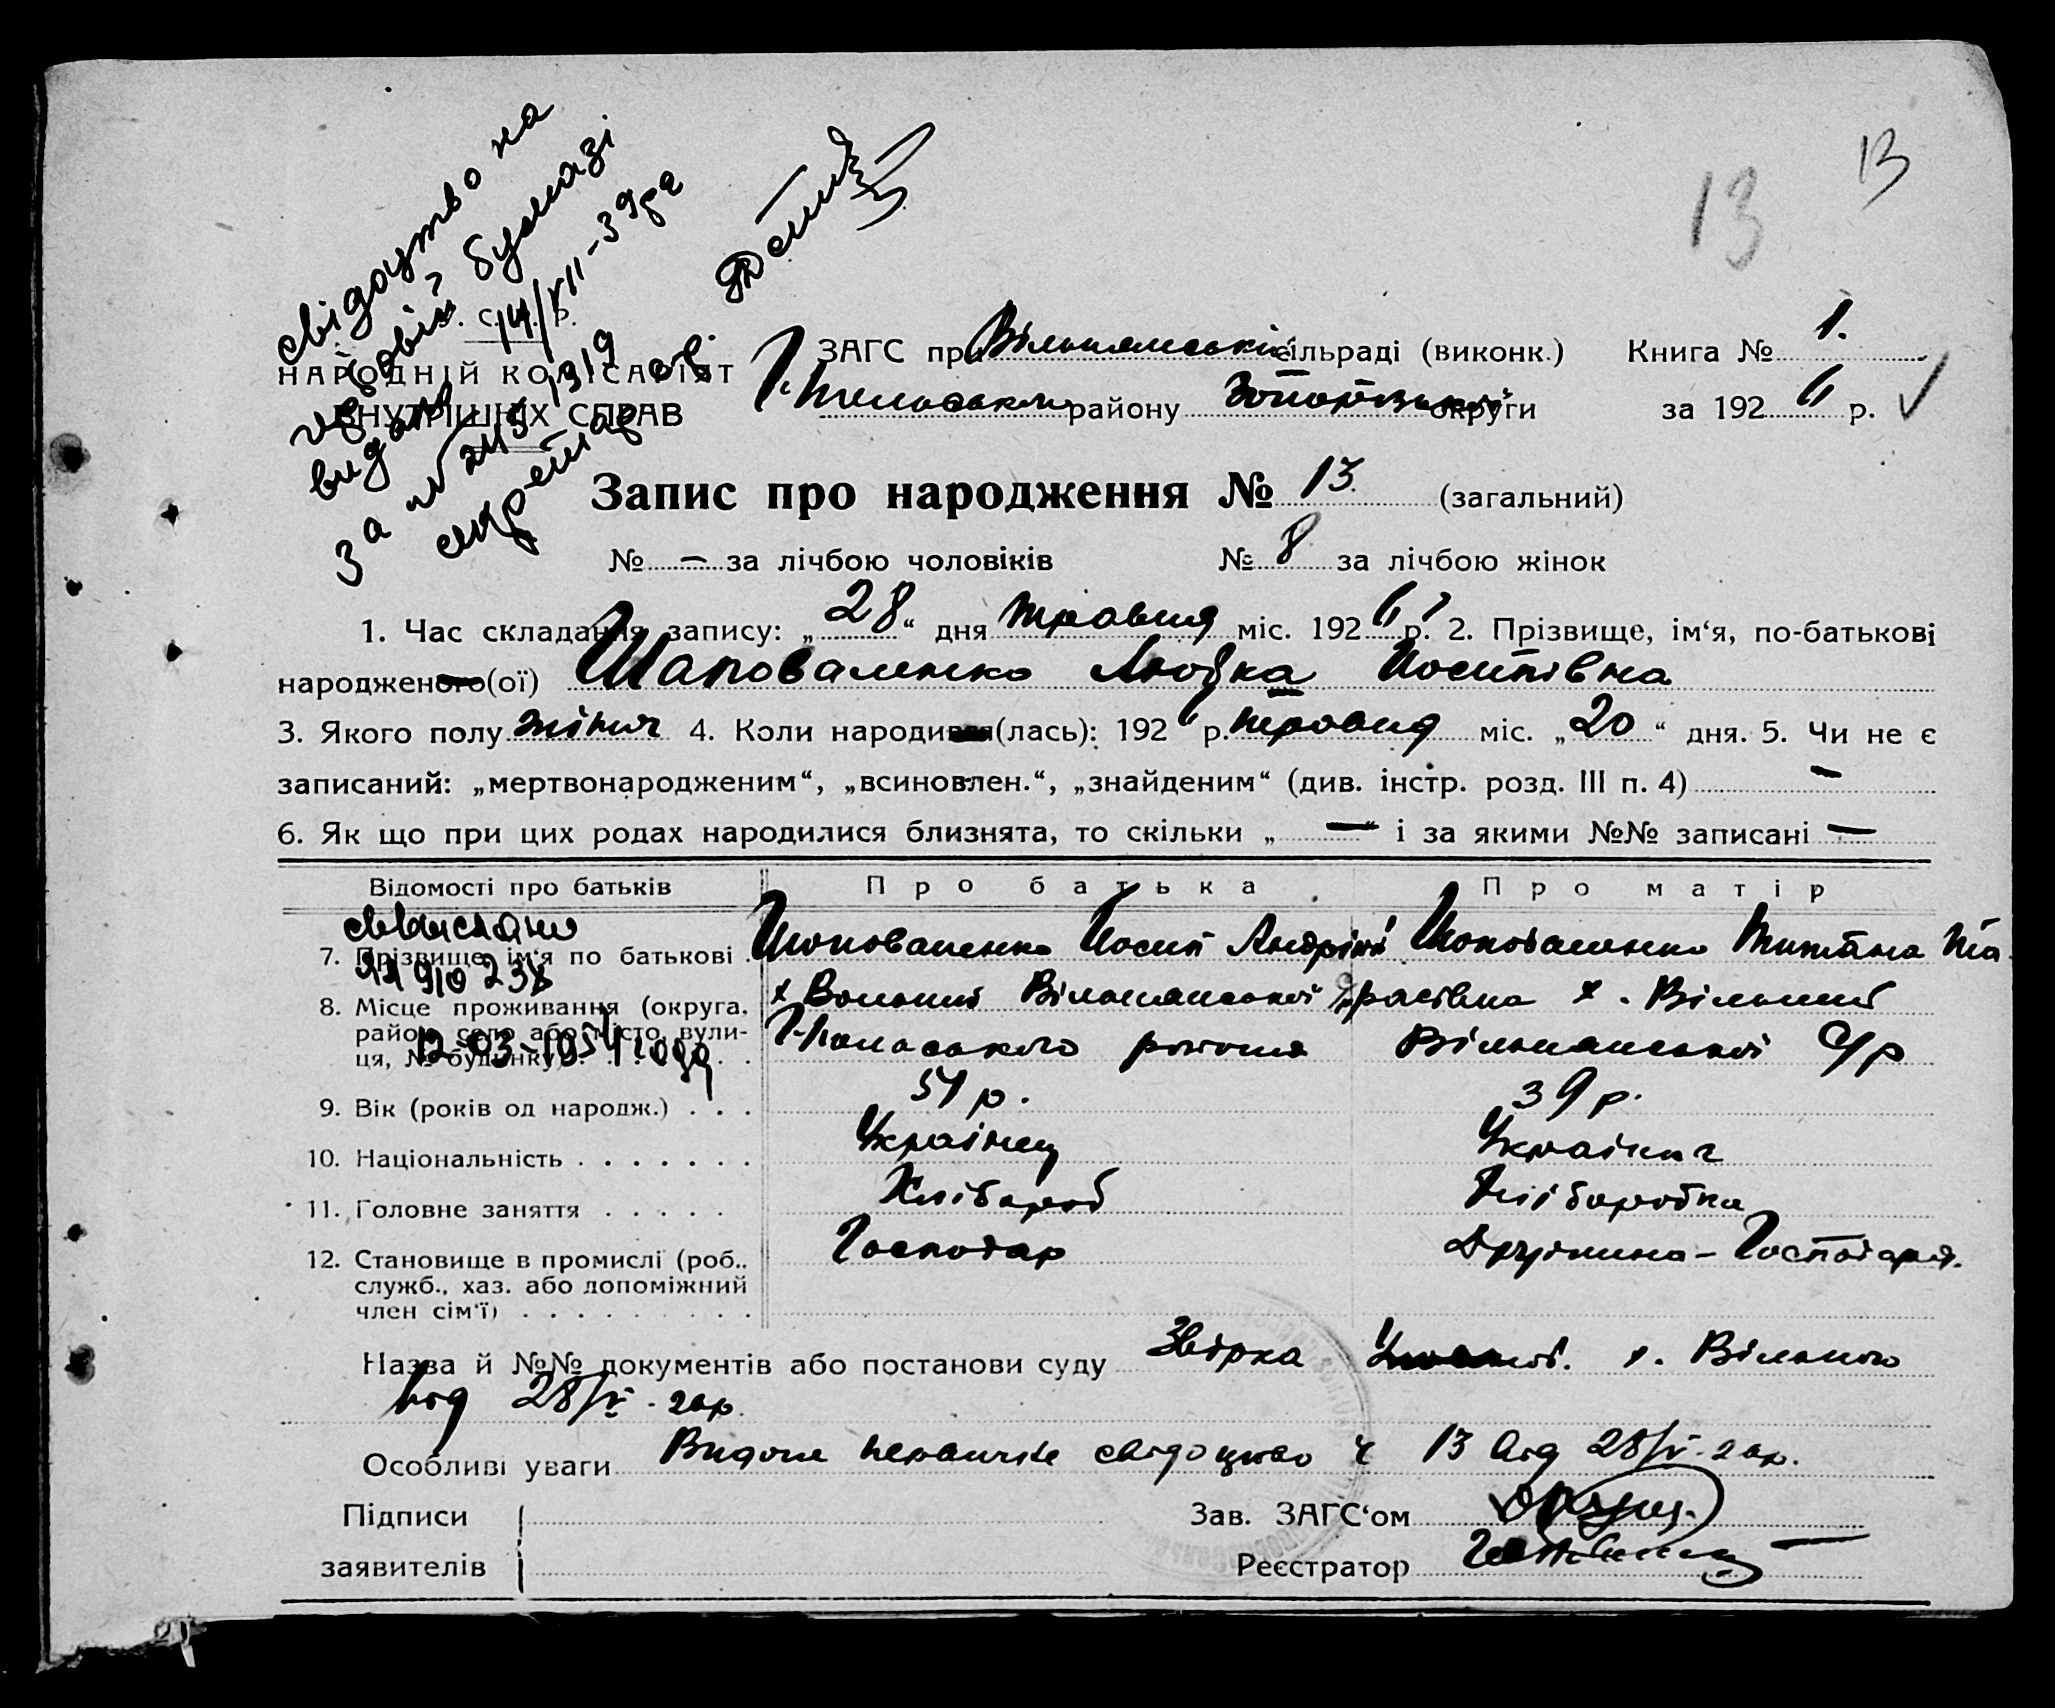 13 13
свідоцтво на
гербовій бумазі
видано 14/XII-39 р
за № 245319
секретар
У. С. Р. Р.
НАРОДНІЙ КОМІСАРІЯТ
ВНУТРІШНІХ СПРАВ
ЗАГС при Вільнянській сільраді (виконк.) Книга № 1.
району округи за 192 6 р.
Запис про народження № 13. (загальний)
№ – за лічбою чоловіків № 8 за лічбою жінок
1. Час складання запису: „28“ дня травня міс. 192 6 р. 2. Прізвище, ім‘я, по-батькові
народженого(ої) Шаповаленко Любка Йосипівна
3. Якого полу жіноч 4. Коли народився(лась): 192 6 р. травня міс. „20“ дня. 5. Чи не є
записаний: „мертвонародженим“, „всиновлен.“, „знайденим“ (див. інстр. розд. III п. 4) –
6. Як що при цих родах народилися близнята, то скільки „ – “ і за якими №№ записані –
Відомості про батьків Про батька Про матір
7. Прізвище, ім‘я по батькові . Шаповаленко Йосип Андрій Шаповаленко Титяна Та
8. Місце проживання (округа, район, село або місто, вулиця, № будинку)
х Вольний Вільнянської расівна х. Вільний
району Вільнянської С/р
12-03-1954 года
9. Вік (років од народж.) . . . 51 р. 39 р.
10. Національність . . . . . . . Українец Українка
11. Головне заняття . . . . . Хлібороб Хліборобка
12. Становище в промислі (роб.,
служб., хаз. або допоміжний
член сім‘ї) . . . . . . . . . Господар Дружина – Господаря.
Назва й №№ документів або постанови суду Звірка х. Вільного
від 28/V-26р.
Особливі уваги Видане свідоцтво ч 13 від 28/V-26р.
Підписи Зав. ЗАГС‘ом
заявителів Реєстратор